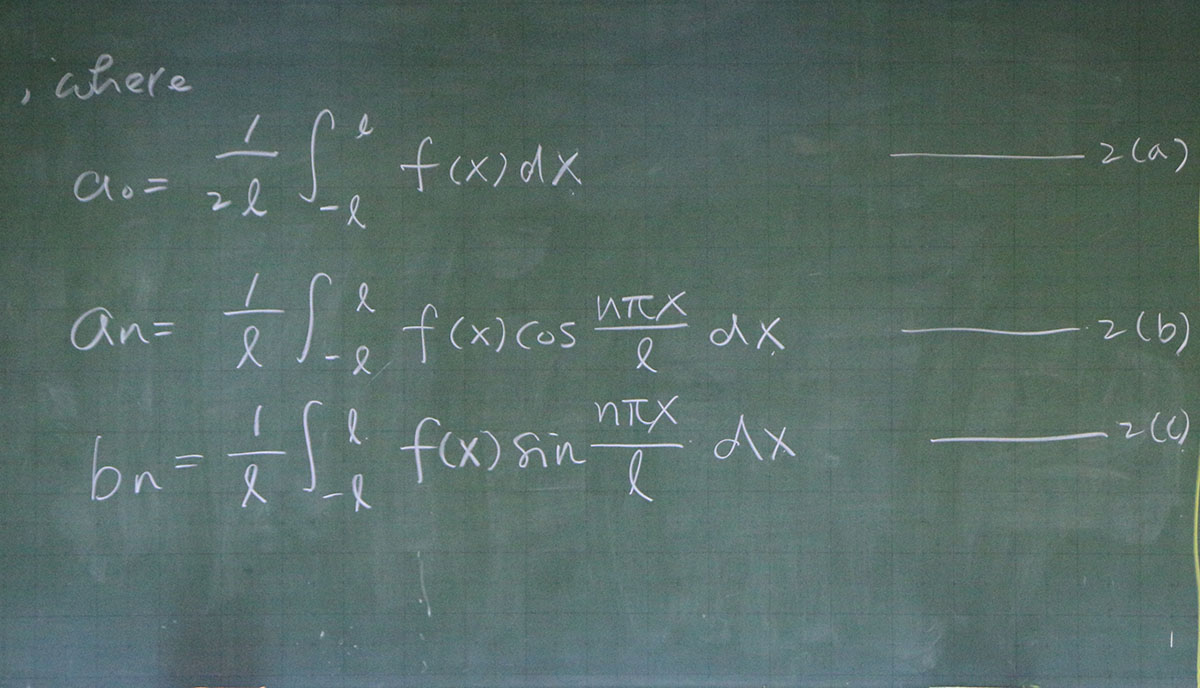 , where
a₀ = 1/2ℓ ∫_{-ℓ}^{ℓ} f(x) dx ——— 2(a)
aₙ = 1/ℓ ∫_{-ℓ}^{ℓ} f(x) cos nπx/ℓ dx ——— 2(b)
bₙ = 1/ℓ ∫_{-ℓ}^{ℓ} f(x) sin nπx/ℓ dx ——— 2(c)